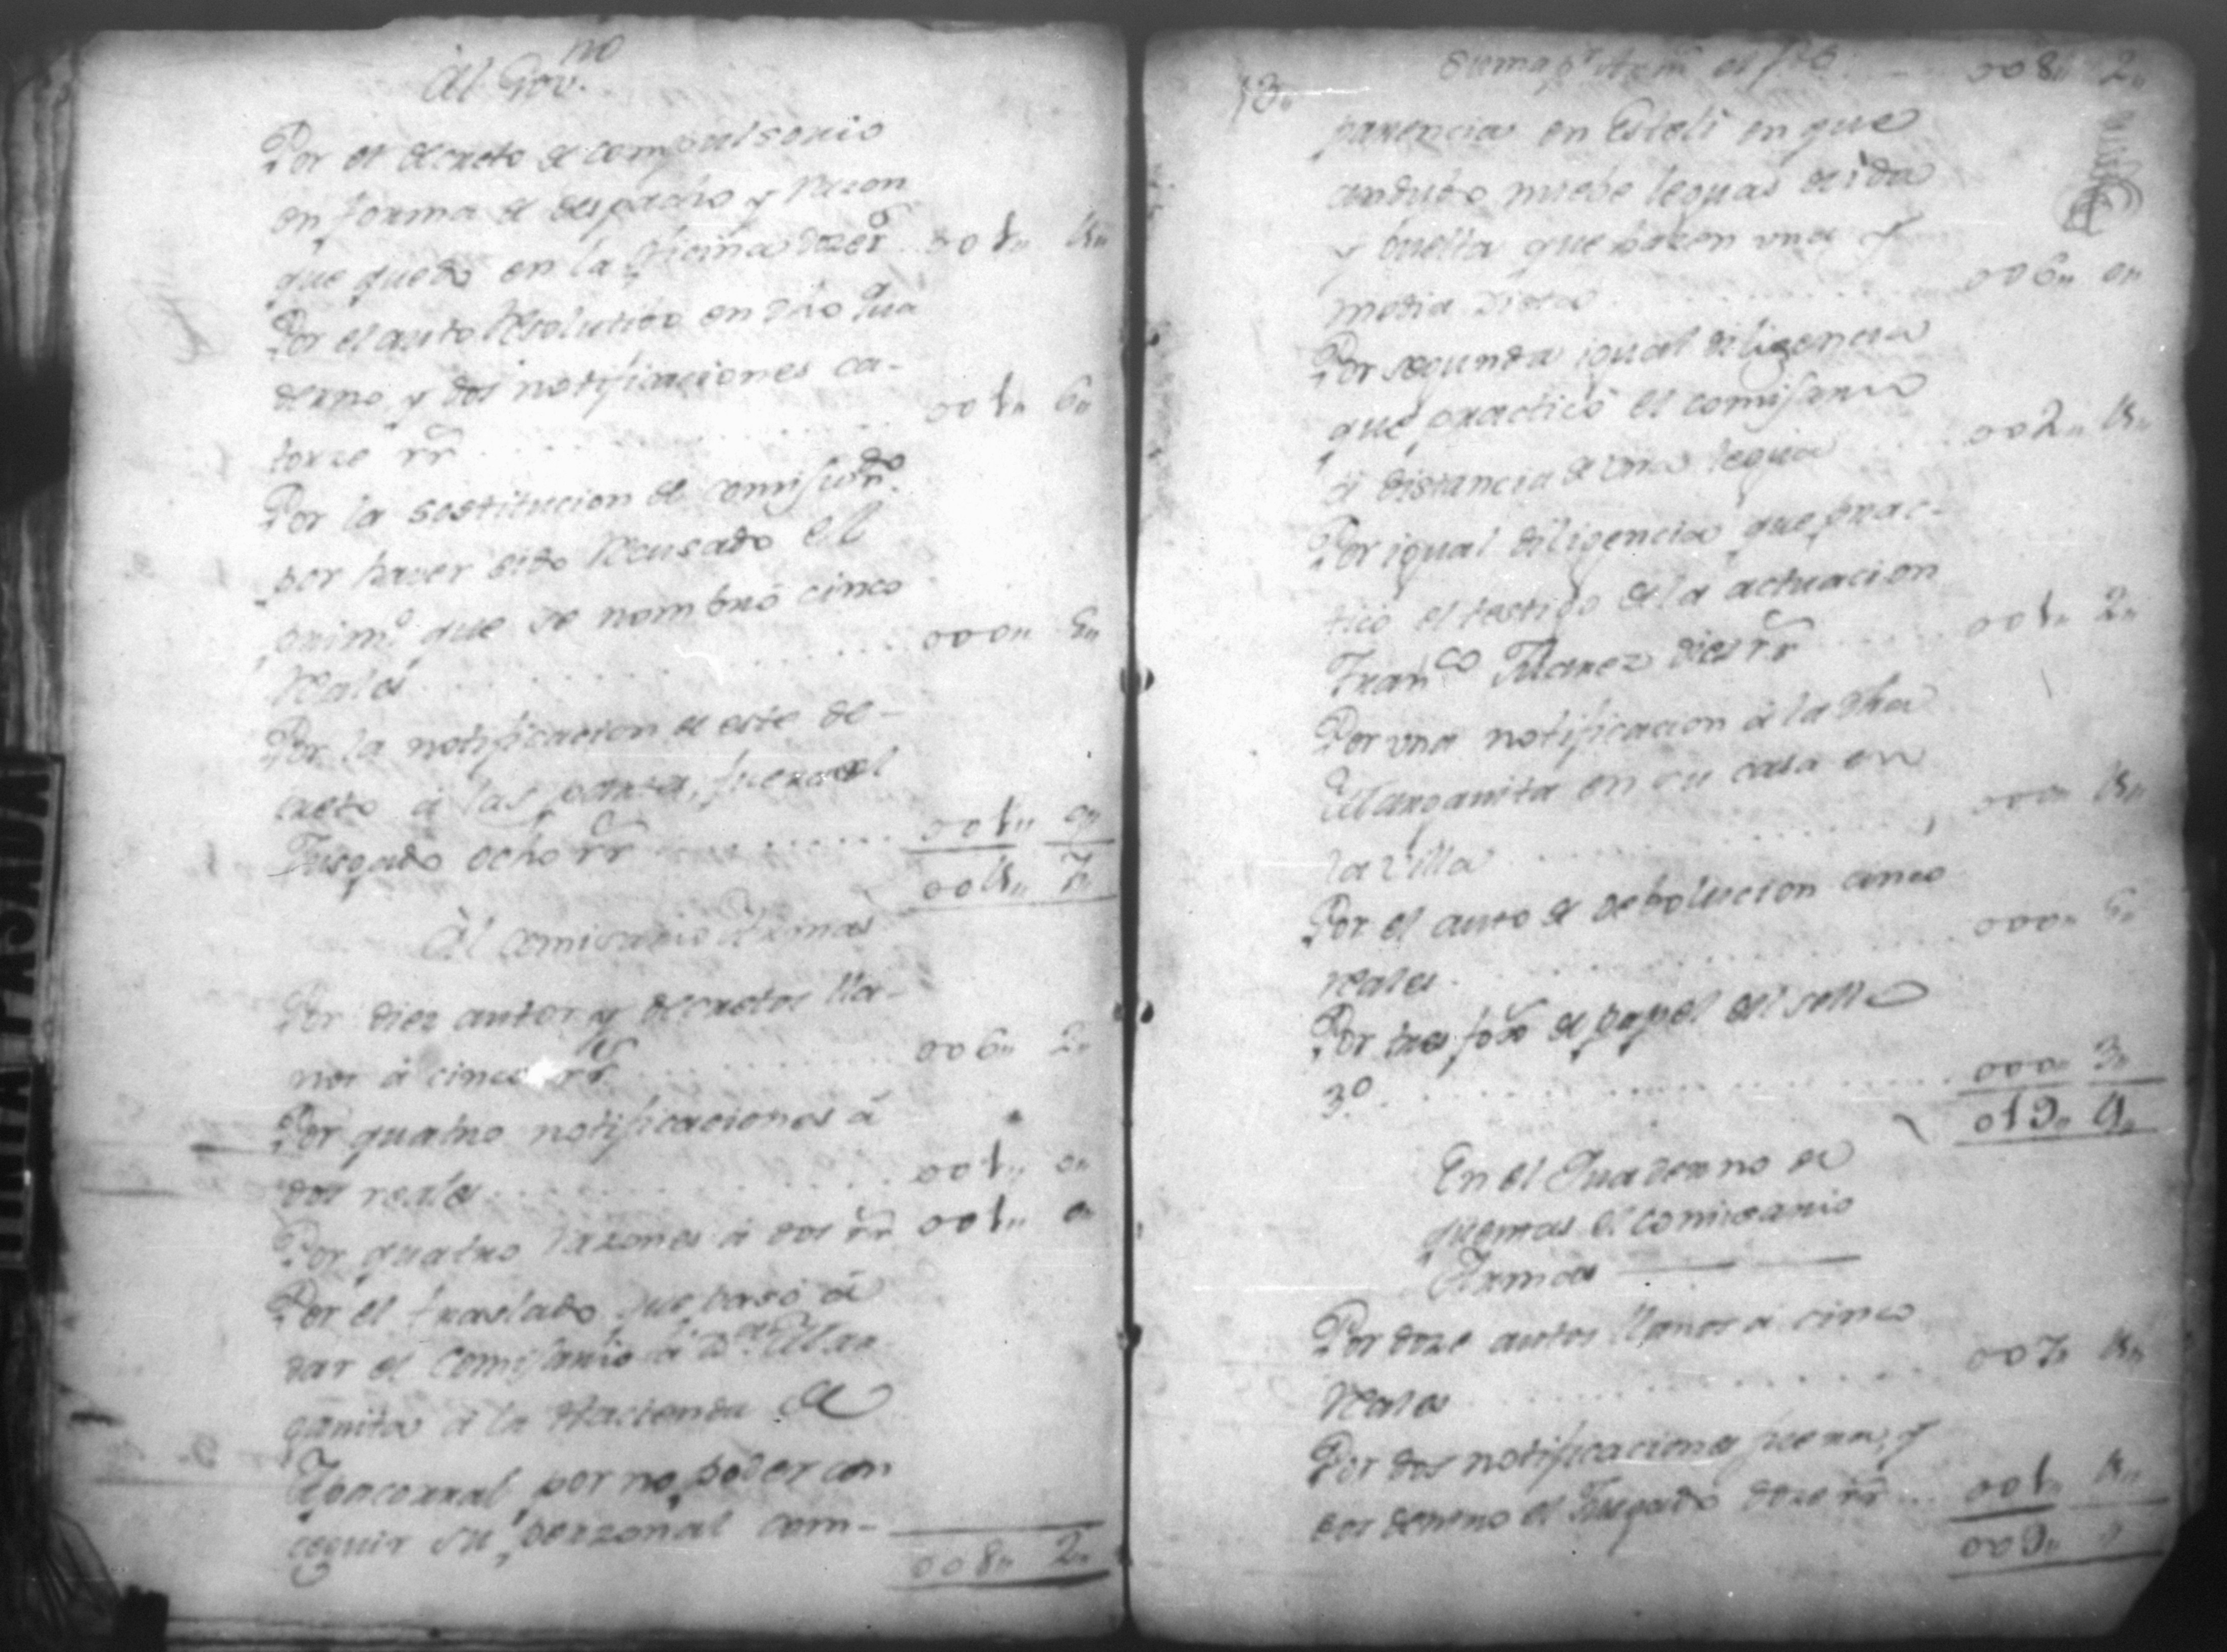 Al Gov.no
Por el decreto de compulsorio
en forma de despacho y razon
que quedó en la oficina doze rr.. 001,, 4,,
Por el auto resolutivo en dho qua
derno, y dos notificaciones ca-
torze rr ........ 001,, 6,,
Por la sostitucion de
por haver sido recusado el
prim.o que se nombró cinco
reales ........ 000,, 5,,
Por la notificacion de este de-
creto á las partes, fuera del
Juzgado ocho rr ........ 001,, 0,,
004,, 7,,
Al comisario Armas
Por diez autos y decretos lla-
nos á cinco rr ........ 006,, 2,,
Por quatro notificaciones á
dos reales ........ 001,, 0,,
Por quatro razones á dos rr 001,, 0,,
Por el traslado que pasó á
dar el comisario á D.a Mar-
garita á la Hacienda de
por no poder con
seguir su personal com-
008,, 2,,
13,,
Suma p.r Arm.s el fte 008,, 2,,
parencia en Esteli en que
anduvo nuebe leguas de ida
y buelta que hazen una y
media dieta ........ 006,, 0,,
Por segunda igual diligencia
que practicó el comisario
á distancia de una legua ..... 002,, 4,,
Por igual diligencia que prac-
ticó el testigo de la actuacion
Fran.co Juarez diez rr ..... 001,, 2,,
Por una notificacion á la dha
Margarita en su casa en
la villa ........ 000,, 4,,
Por el auto de debolucion cinco
reales ........ 000,, 5,,
Por tres fox.s de papel del sello
3.o ........ 000,, 3,,
019,, 4,,
En el Quaderno de
quemas el comisario
Armas
Por doze autos llanos á cinco
reales ........ 007,, 4,,
Por dos notificaciones fuera, y
dos dentro el Juzgado doze rr ... 001,, 4,,
009,, ,,
PASADA